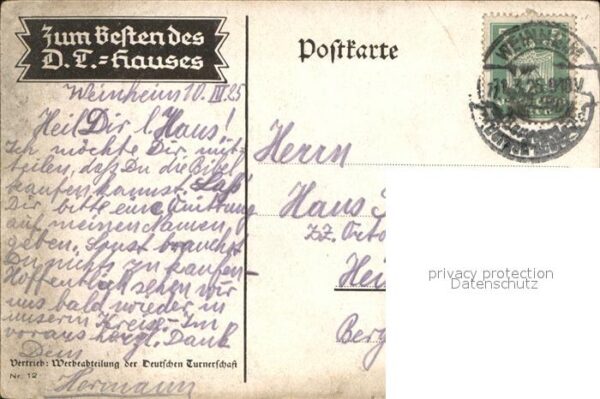 Zum Besten des
D. T.-Hauses
Postkarte
Weinheim 10. III 25
Heil Dir l. Hans!
Ich möchte Dir mit-
teilen, daß Du die Bibel
kaufen kannst. Laß'
Dir bitte eine Quittung
auf meinen Namen
geben. Sonst brauchst
Du nichts zu kaufen-
Hoffentlich sehen wir
uns bald wieder in
unserm Kreise. Im
voraus herzl. Dank
Dein
Hermann
Vertrieb: Werbeabteilung der Deutschen Turnerschaft
Nr. 12
WEINHEIM
Herrn
Hans
zz.
Hei
Berg
privacy protection
Datenschutz